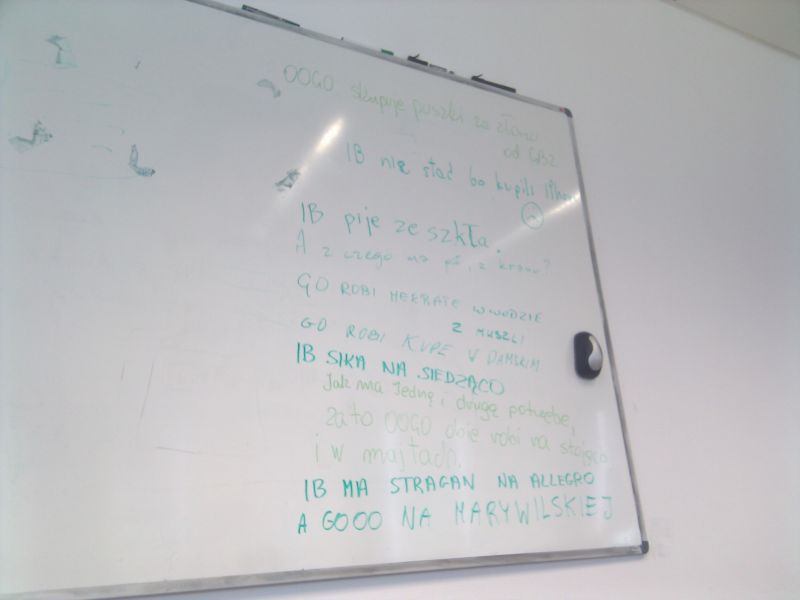 OOGO skupuje puszki za złom
od GB2
IB nie stać bo kupili
IB pije ze szkła.
A z czego ma pić, z kranu?
GO ROBI HERBATE W WODZIE
Z MUSZLI
GO ROBI KUPE W DAMSKIM
IB SIKA NA SIEDZĄCO
Jak ma jedną i drugą potrzebę,
za to OOGO obie robi na stojąco
i w majtach.
IB MA STRAGAN NA ALLEGRO
A GOOO NA MARYWILSKIEJ